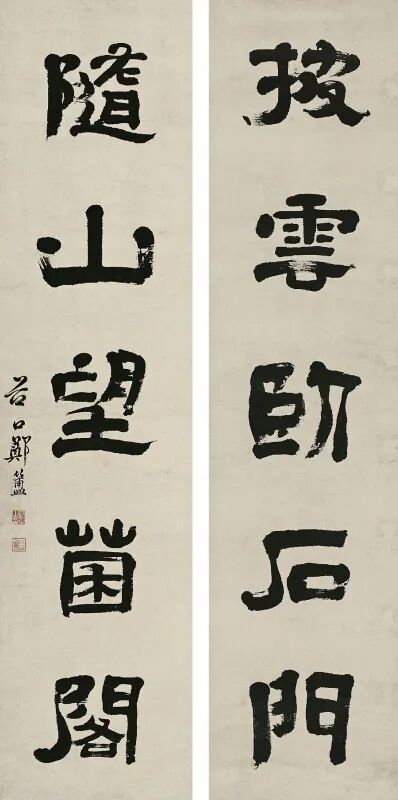 披雲卧石門
隨山望菌閣
谷口鄭簠